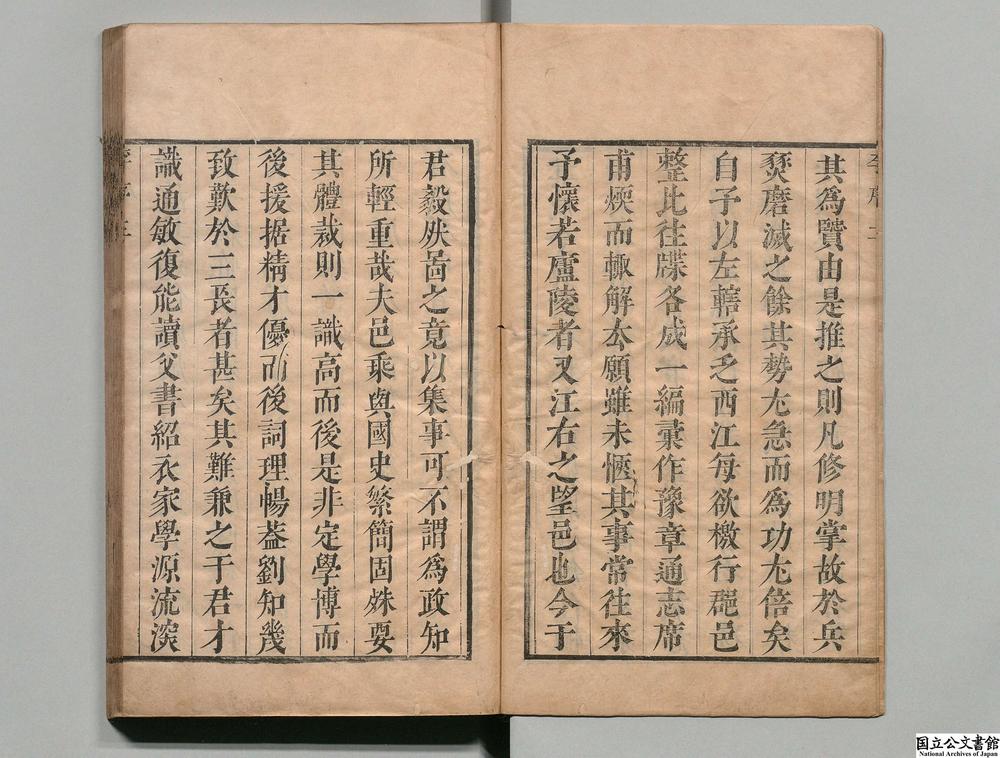 其爲贒由是推之則凡修明掌故於兵
燹磨滅之餘其勢尤急而爲功尤倍矣
自予以左轄承乏西江每欲檄行郡邑
整比往牒各成一編彚作豫章通志席
甫煗而輙解去願雖未愜其事常往來
予懷若廬陵者又江右之望邑也今于
君毅然啚之竟以集事可不謂爲政知
所輕重哉夫邑乘與國史繁簡固殊要
其體裁則一識高而後是非定學博而
後援据精才優而後詞理暢葢劉知幾
致歎於三長者甚矣其難兼之于君才
識通敏復能讀父書紹衣家學源流深
李序 二
国立公文書館
National Archives of Japan